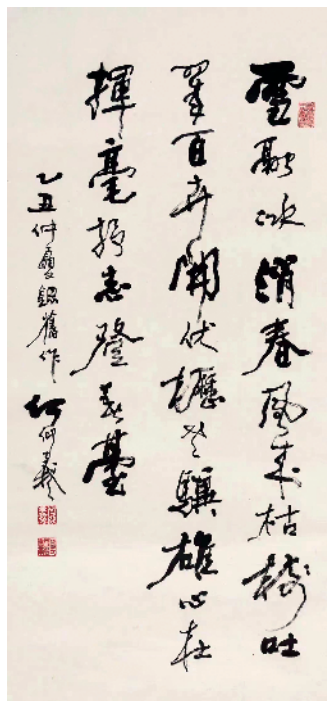 雪融冰消春風來枯樹吐
翠百卉開伏櫪老驥雄心在
揮毫抒志登臺
乙丑仲夏錄舊作
何